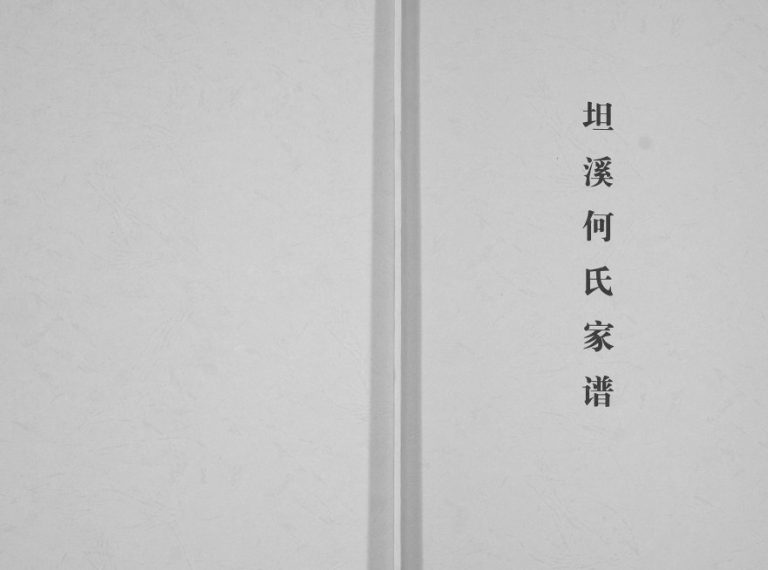 坦溪何氏家谱